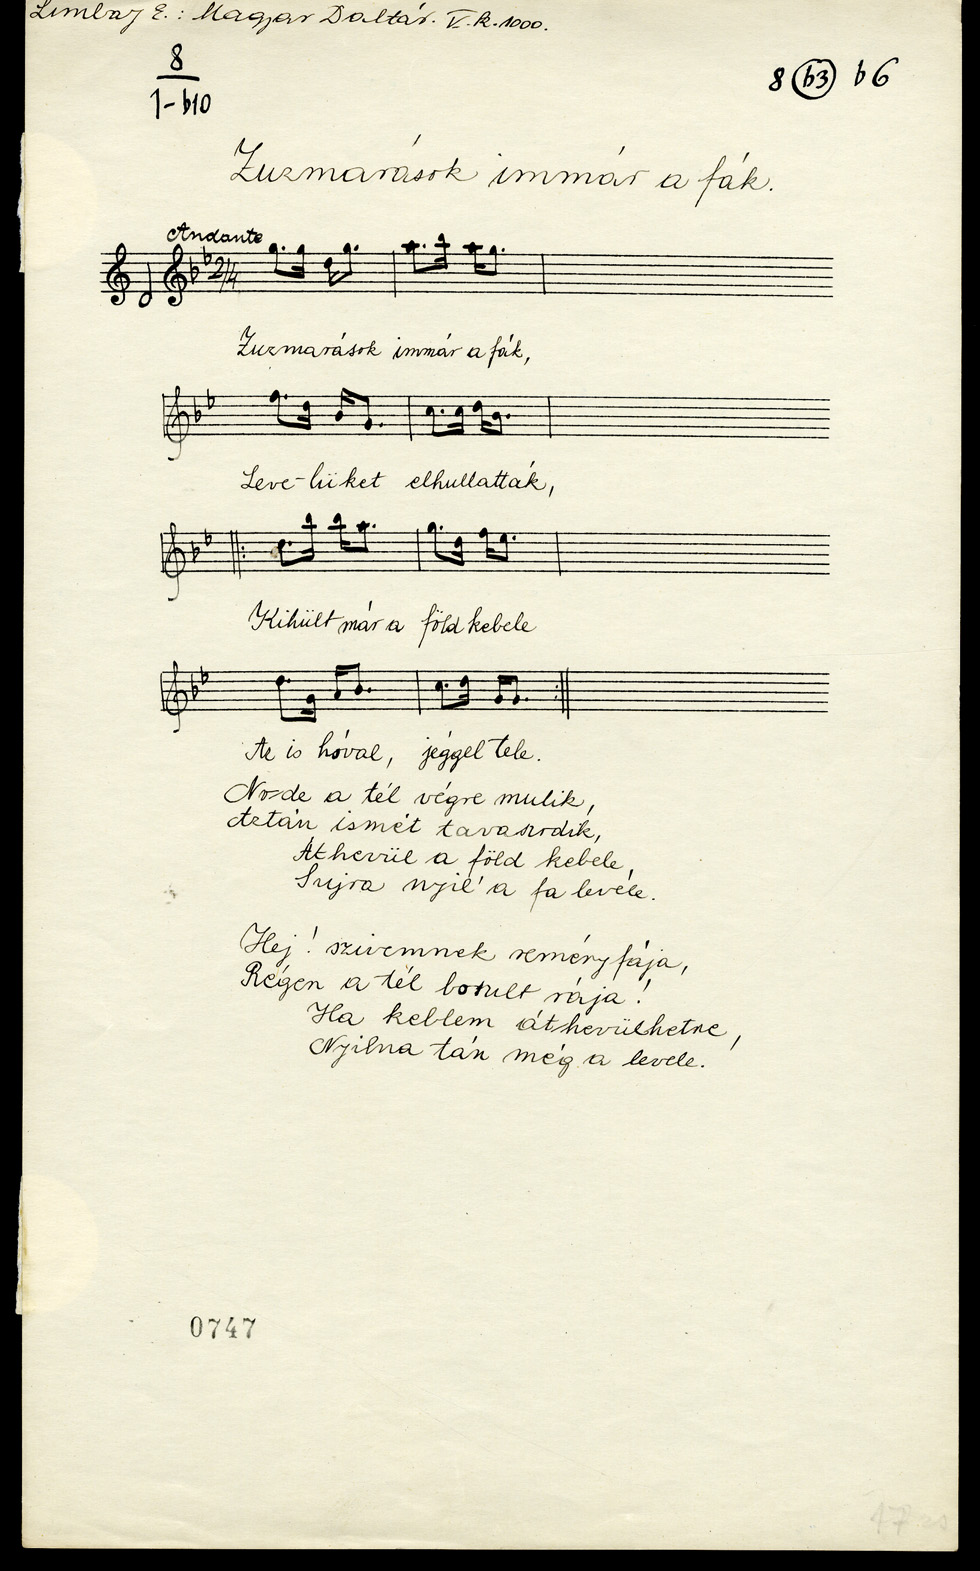 Limbay E.: Magyar Daltár. V. k. 1000.
8
1-b10
8 b3 b6
Zuzmarások immár a fák.
Andante
2/4
Zuzmarások immár a fák,
Leve-lüket elhullatták,
Kihült már a föld kebele
Az is hóval, jéggel tele.
No de a tél végre mulik,
Aztán ismét tavaszodik,
Áthevül a föld kebele,
S ujra nyil' a fa levele.
Hej! szivemnek reményfája,
Régen a tél borult rája!
Ha keblem áthevülhetne,
Nyilna tán még a levele.
0747